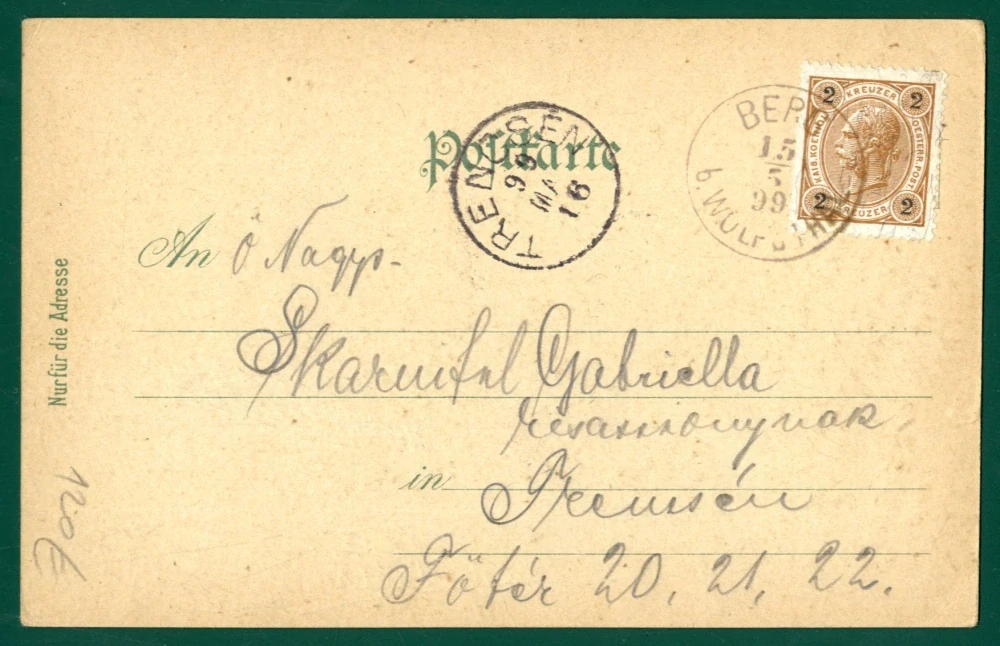 2 KREUZER 2
KAIS. KOENIGL. OESTERR. POST.
2 KREUZER 2
BER
15
99
b. WOLF
TRENCSÉN
99
MA
16
Postkarte
An Ö Nagys-
Skarnitzl Gabriella
kisasszonynak
in Trencsén
Főtér 20, 21, 22.
Nur für die Adresse
120